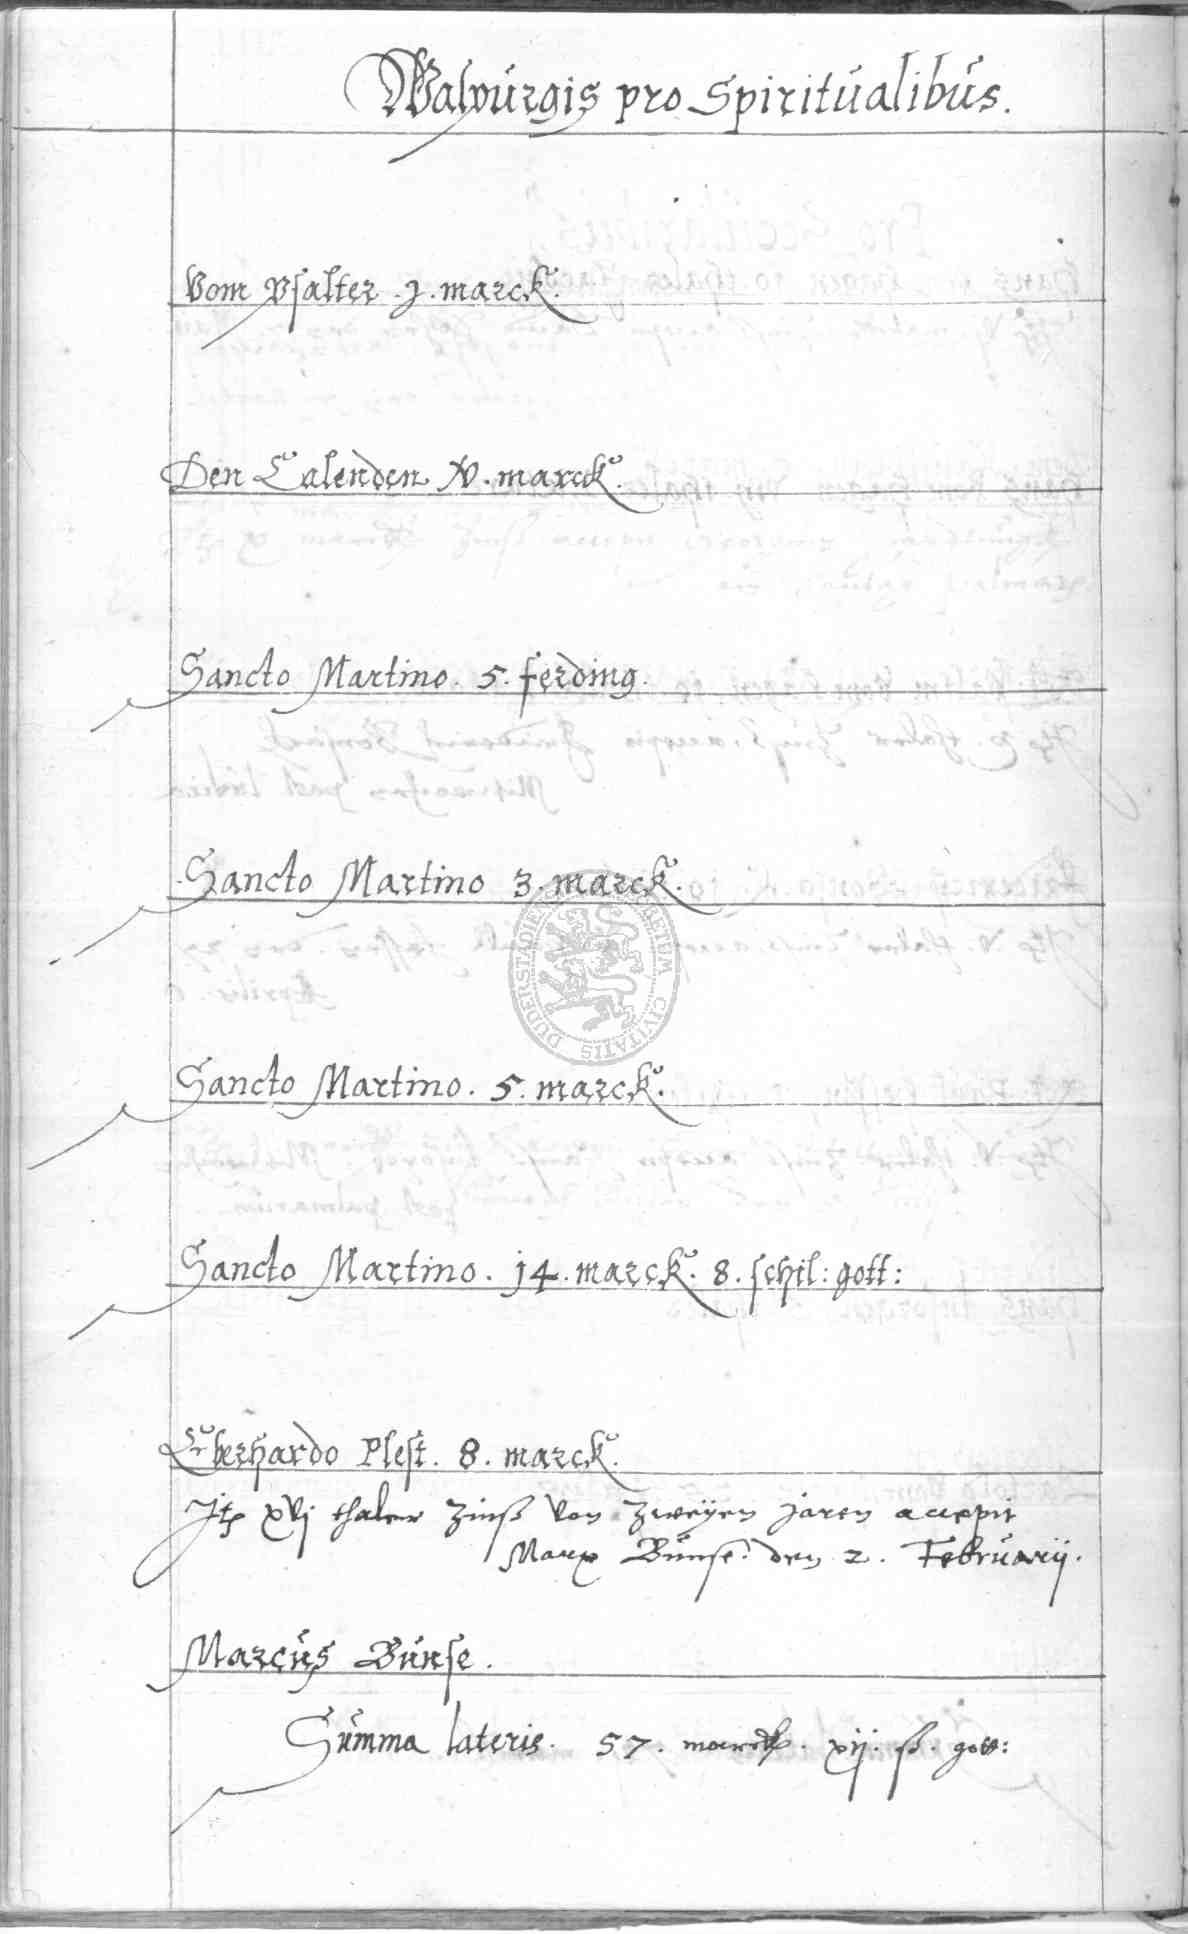 Walpurgis pro Spiritualibus.
Vom Psalter .j. marck.
Den Calenden V. marck.
Sancto Martino. 5. ferding.
Sancto Martino 3. marck.
Sancto Martino. 5. marck.
Sancto Martino. 14. marck. 8. schil: gott:
Eberhardo Plest. 8. marck.
Itp xvj thaler Zinß von zweyen jaren accepit
Marx Bünse. den 2. Februarij.
Marcus Bunse.
Summa lateris. 57. marck. xij. ß. gott:
DUDERSTADIENSIS CIVITATIS